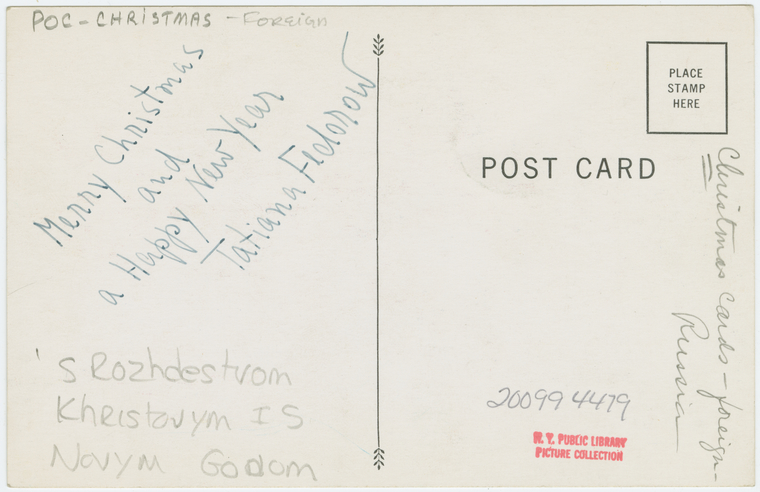 POC - CHRISTMAS - FOREIGN
Merry Christmas
and
a Happy New Year
Tatiana Fedorow
's Rozhdestvom
Khristovym I S
Novym Godom
PLACE
STAMP
HERE
POST CARD
Christmas cards - foreign -
Russia
200994479
N.Y. PUBLIC LIBRARY
PICTURE COLLECTION